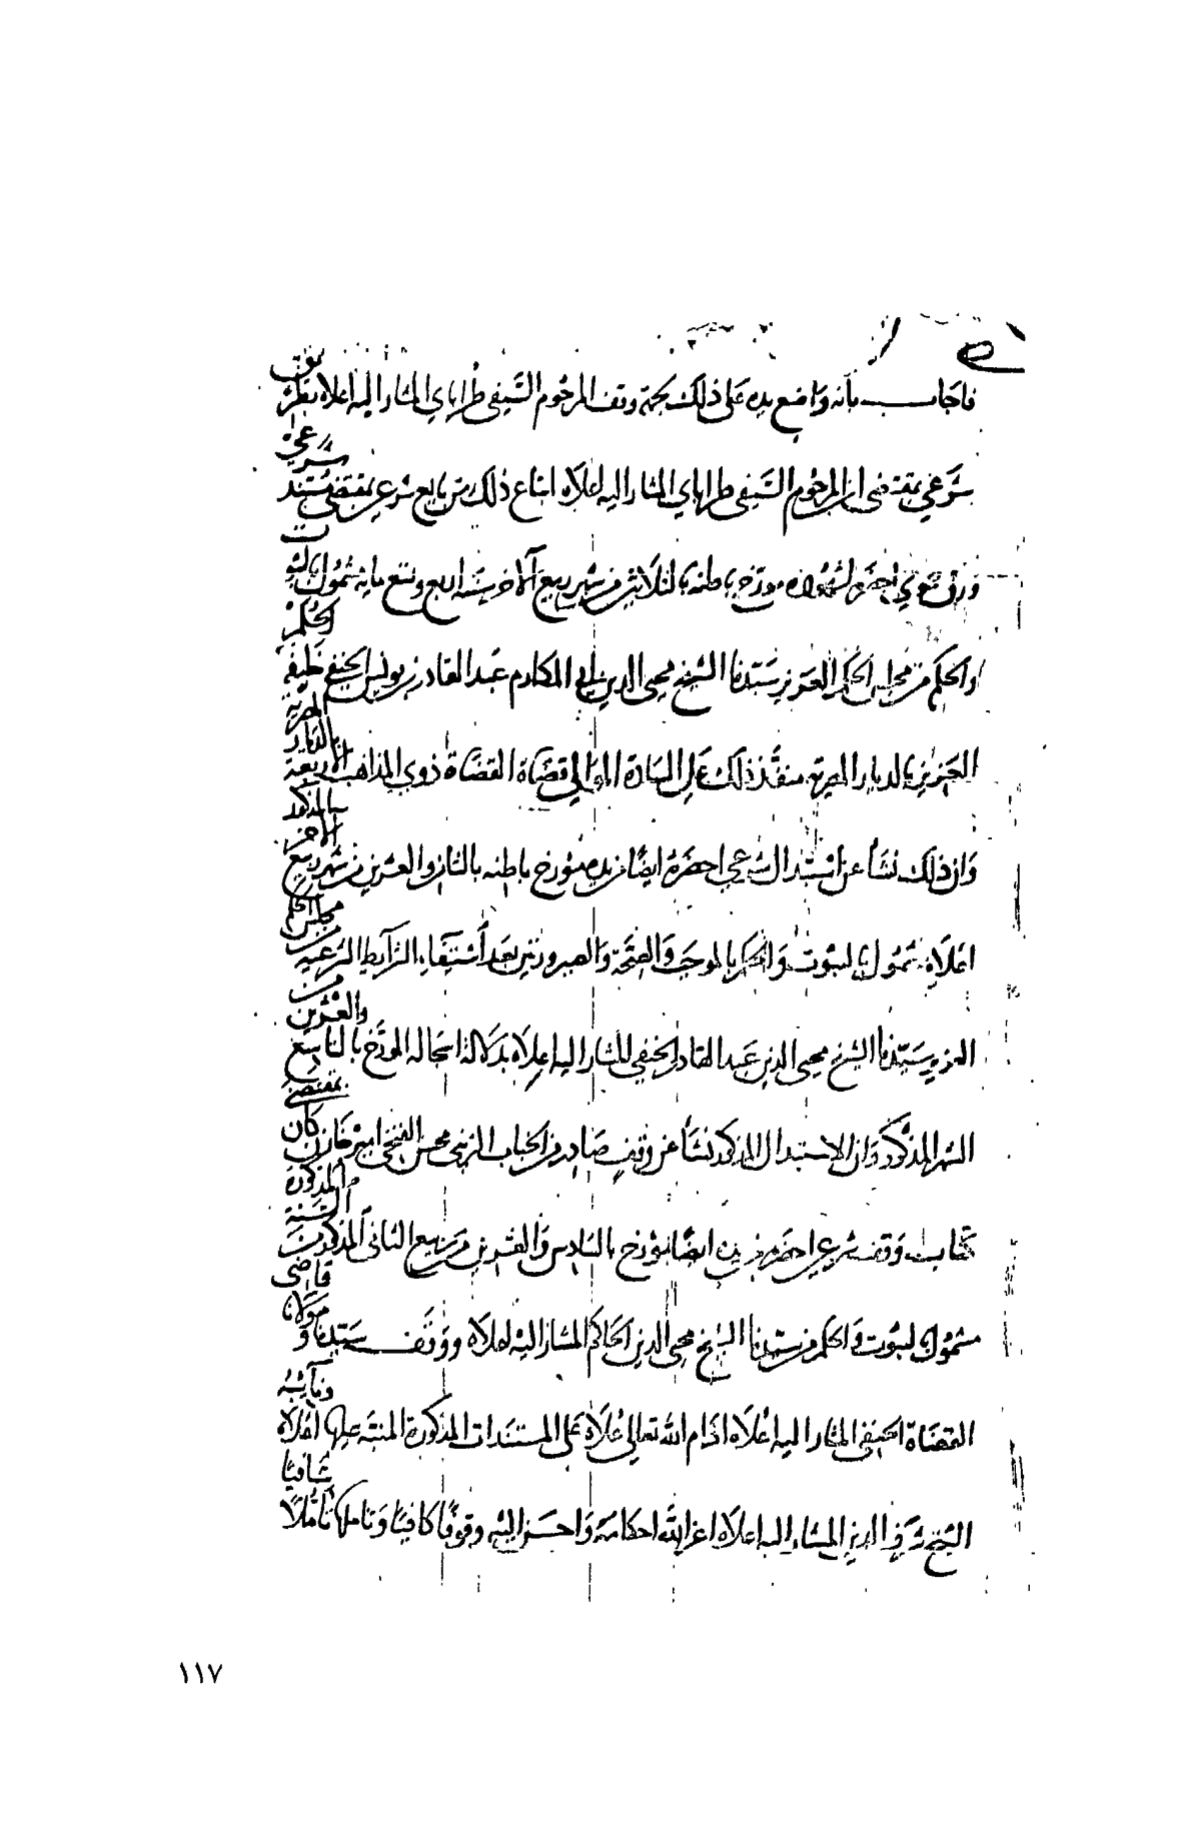 فاجاب بانه واضع يده على ذلك بجهة وقف المرحوم السيفى طراباي المشار اليه اعلاه بطريق
شرعي بمقتضى ان المرحوم السيفى طراباي المشار اليه اعلاه ابتاع ذلك من بايع شرعي بمقتضى مستند شرعي
ورق شموي احضره لشهوده مورخ باطنه بالثلاثين من شهر ربيع الاخر سنة اربع وتسع ماية مشمول بالثبوت
والحكم من مجلس الحكم العزيز سيدنا الشيخ محيى الدين ابى المكارم عبد القادر بن يونس الحنفى خليفة الحكم
العزيز بالديار المصرية منفذ ذلك على السادة الموالي قضاة القضاة ذوي المذاهب الاربعة بالديار المصرية
وان ذلك نشأ عن استبدال شرعي احضره ايضا من يده مورخ باطنه بالثاني والعشرين من شهر ربيع الاخر المذكور
اعلاه مشمول بالثبوت والحكم بالموجب والصحة والصيرورتين بعد استيفاء الشرايط الشرعية مجلس الحكم
العزيز سيدنا الشيخ محيى الدين عبد القادر الحنفي المشار اليه اعلاه بدلالة اسجاله المورخ بالتاسع والعشرين من
الشهر المذكور وان الاستبدال المذكور نشأ عن وقف صادر من الجناب الزينى محسن الفتحى امير خازن كان بمقتضى
كتاب وقف شرعي احضره من يده ايضا مورخ بالسادس والعشرين من ربيع الثانى المذكور من السنة المذكورة
مشمول بالثبوت والحكم من سيدنا الشيخ محيى الدين الحاكم المشار اليه اعلاه ووقف سيدنا ومولانا قاضى
القضاة الحنفى المشار اليه اعلاه ادام الله تعالى علاه على المستندات المذكورة المنبه عليها اعلاه ونائبه
الشيخ شرف الدين المشار اليه اعلاه اعز الله احكامه واحسن اليه وقوفا كافيا وتاملها تأملا شافيا
١١٧